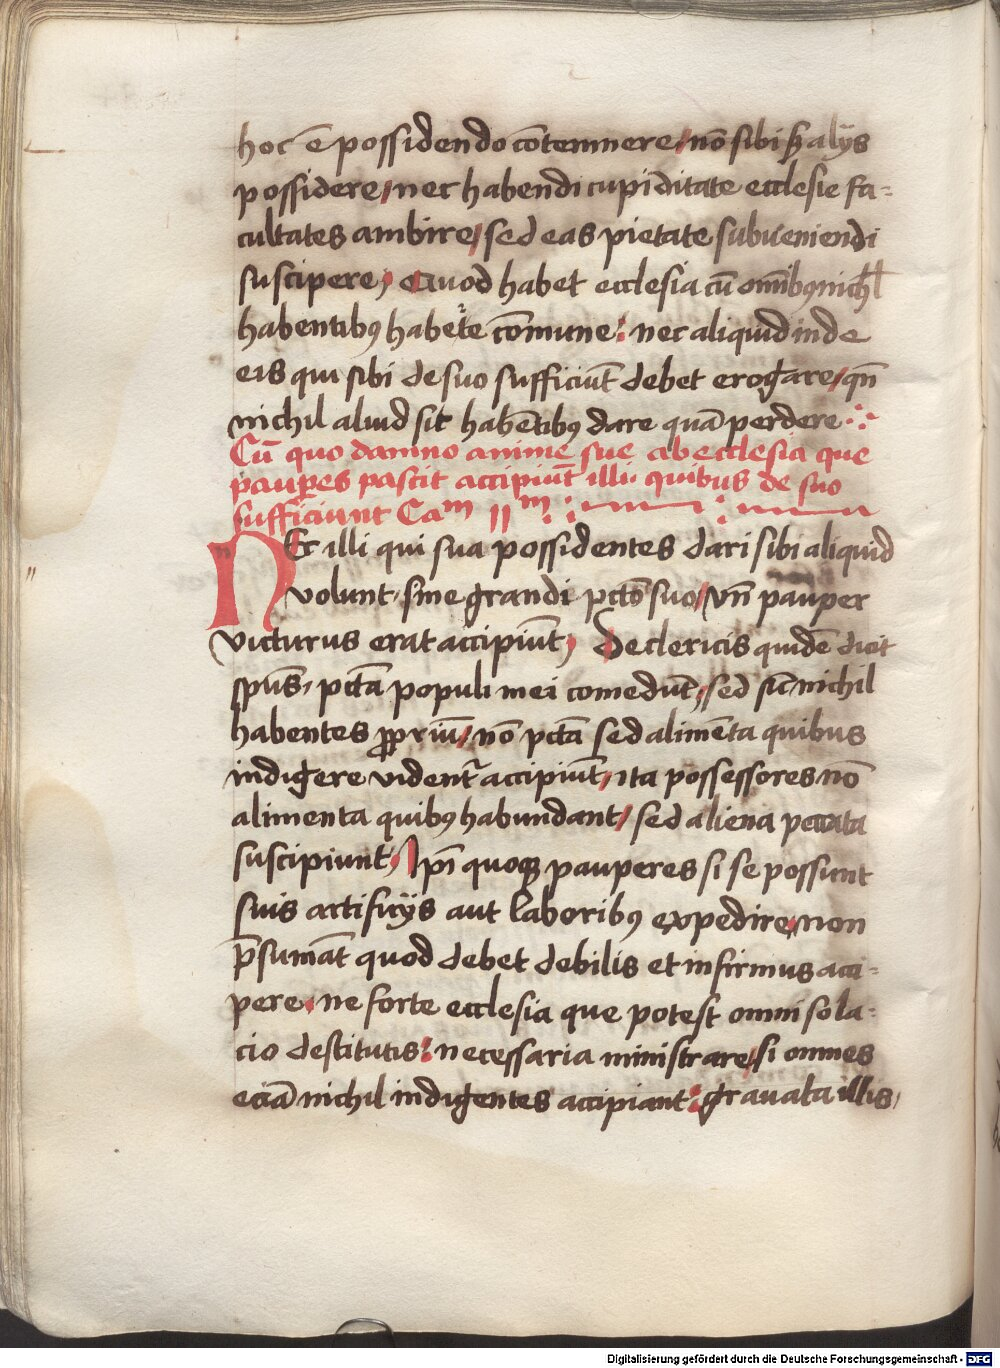 hoc ē possidendo cōtemnere, nō sibi ꝫ alijs
possidere, nec habendi cupiditate ecclesie fa-
cultates ambire, sed eas pietate subueniendi
suscipere, Quod habet ecclesia cū om̄ibꝯ nichl
habentibꝯ habere cōmune: nec aliquid inde
eis qui sibi de suo sufficiūt debet erogare, qn̄
nichil aliud sit habētibꝯ dare quā perdere
Cū quo damno anime sue ab ecclesia que
pauꝑes pascit accipiūt illi quibus de suo
sufficiunt Caᵐ IIᵐ
NEc illi qui sua possidentes dari sibi aliquid
volunt, sine grandi pctō suo, vn̄ pauper
victurus erat accipiūt, De clericis quidē dicit
sp̄us, pctā populi mei comedūt, sed sic̄ nichil
habentes ꝓpriū, nō pctā sed alimēta quibus
indigere videntʳ accipiūt, ita possessores nō
alimenta quibꝯ habundant, sed aliena peccata
suscipiunt, Ip̄i quoqꝫ pauperes si se possunt
suis artificijs aut laboribꝯ expedire, non
p̄sumāt quod debet debilis et infirmus acci-
pere, ne forte ecclesia que potest omni sola-
cio destitutis: necessaria ministrare, si omnes
eciā nichil indigentes accipiant: grauata illis,
Digitalisierung gefördert durch die Deutsche Forschungsgemeinschaft - DFG